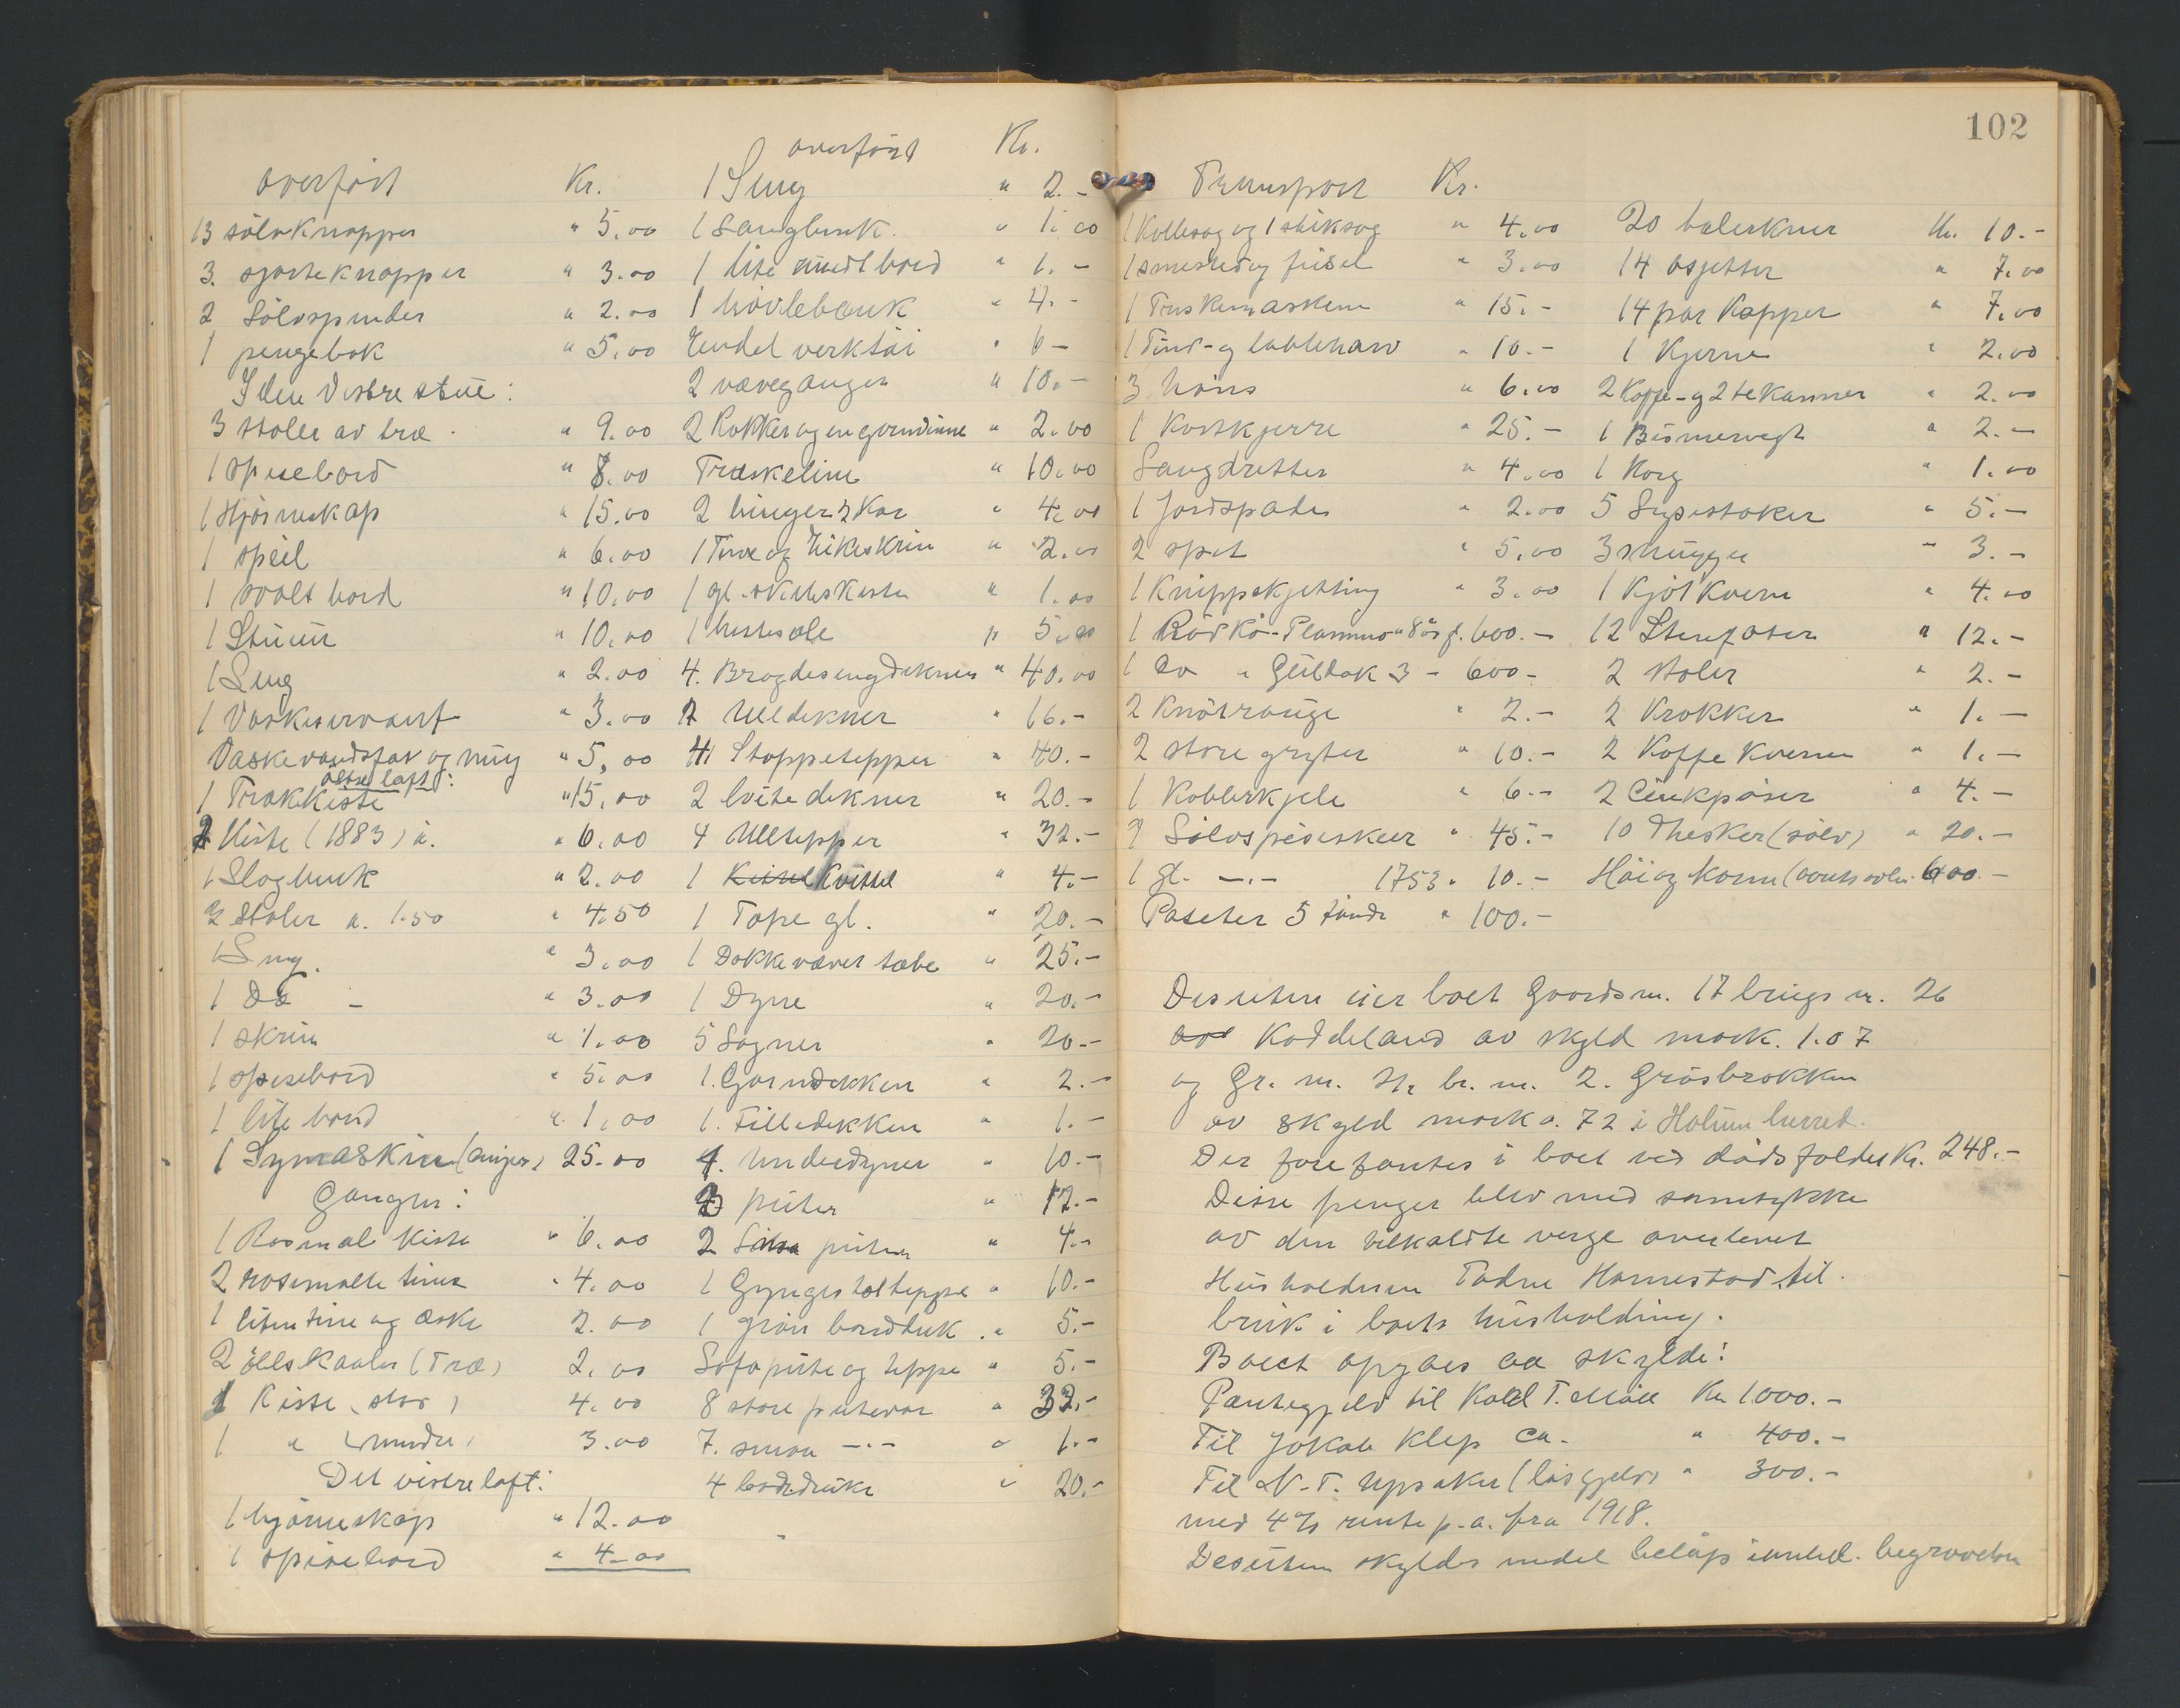 overført Kr.
13 sölvknapper " 5.00
3. sjorteknapper " 3.00
2 Sölvspender " 2.00
1 pengebok " 5.00
I den Vestre stue:
3 stoler av træ " 9.00
1 spisebord " 8.00
1 Hjörneskap " 15.00
1 speil " 6.00
1 bord " 10.00
1 Stuur " 10.00
1 Seng " 2.00
1 Vaskeservant " 3.00
Vaskevandsfat og mug " 5,00
östre loft:
1 Trækkiste " 15.00
2 Kiste (1883) a. " 6.00
1 Slagbenk " 2.00
3 Stoler a. 1.50 " 4.50
1 Seng. " 3.00
1 Do - " 3.00
1 skrin " 1.00
1 spisebord " 5.00
1 lite bord " 1.00
1 Symaskin (singer) 25.00
Gangen:
1 Rosmalt kiste " 6.00
2 rosemalte tiner " 4.00
1 liten tine og æske 2.00
2 öllskaaler (Træ) 2.00
1 Kiste (stor) 4.00
1 " (mindre) 3.00
Det vestre loft:
1 hjörneskap " 12.00
1 spisebord " 4.00
overført Kr.
1 Seng " 2.-
1 Langbenk " 1.00
1 lite rundt bord " 1.-
1 hövlebenk " 4.-
Endel verktöi " 6-
2 væveganger " 10.-
2 Rokker og en garnvinne " 2.00
Træskelim " 10.00
2 kar " 4.00
1 Tine og Eikeskrin " 2.00
1 gl. kiste " 1.00
1 hestesale " 5.00
4. Bragdesengdekner " 40.00
2 Ulldekner " 16.-
4 Stoppetepper " 40.-
2 hvite dekner " 20.-
4 Ulltepper " 32.-
1 Kvitel " 4.-
1 Tæpe gl. " 20.-
1 Dokkevævet tæbe " 25.-
1 Dyne " 20.-
5 Lagner " 20.-
1. Garndekken " 2.-
1. Filledekken " 1.-
4. Underdyner " 10.-
puter " 12.-
2 puter " 4.-
1 Gyngestolteppe " 10.-
1 grön bordduk " 5.-
Sofapute og teppe " 5.-
8 store putevar " 32.-
7. smaa -"- " 1.-
4 bordduke " 20.-
102
Transport Kr.
1 Kollesag og 1 stiksag " 4.00
1 smested og fusel " 3.00
1 Treskemaskin " 15.-
1 Tind- og labbeharv " 10.-
3 höns " 6.00
1 Kostkjerre " 25.-
Langdrætter " 4.00
1 Jordspade " 2.00
2 spet " 5.00
1 Knippekjetting " 3.00
1 Röd Ko - " 8 år g. 600.-
1 Do " Guldak 3 - 600-
2 " 2.-
2 store gryter " 10.-
1 Kobberkjele " 6.-
9 Sölvspiseskeer " 45.-
1 gl. -"- 1753 " 10.-
Poteter 5 tönde " 100.-
20 talerkner Kr. 10.-
14 asjetter " 7.00
14 par Kopper " 7.00
1 Kjerne " 2.00
2 Kaffe- og 2 tekanner " 2.00
1 Bismervegt " 2.-
1 Korg " 1.00
5 Lysestaker " 5.-
3 mugger " 3.-
1 Kjötkvern " 4.00
12 Stenfater " 12.-
2 stoler " 2.-
2 Krokker " 1.-
2 Koffe Kverne " 1.-
2 Cinkpöser " 4.-
10 Theskeer (sölv) " 20.-
Höi og korn 600.-
Desuten eier boet Gaardsn. 17 bruks n. 26
Koddeland av skyld mark. 1.07
og Gr. n. br. n. 2. Gråsbrokken
av skyld mark 0.72 i Holum herred.
Der forefantes i boet ved dödsfaldet Kr. 248.-
Disse penger blev med samtykke
av den tilkaldte verge overlevert
Husholdersken Tadne Harnestad til
bruk i boets husholdning.
Boet opgaes aa skylde:
Pantegjeld til Kald T. Möll Kr. 1000.-
Til Jakob Klep ca. " 400.-
Til N. T. Upsaker (lösgjeld) " 300.-
med 4% rente p.a. fra 1918.
Desuten skyldes endel belöp begravelse